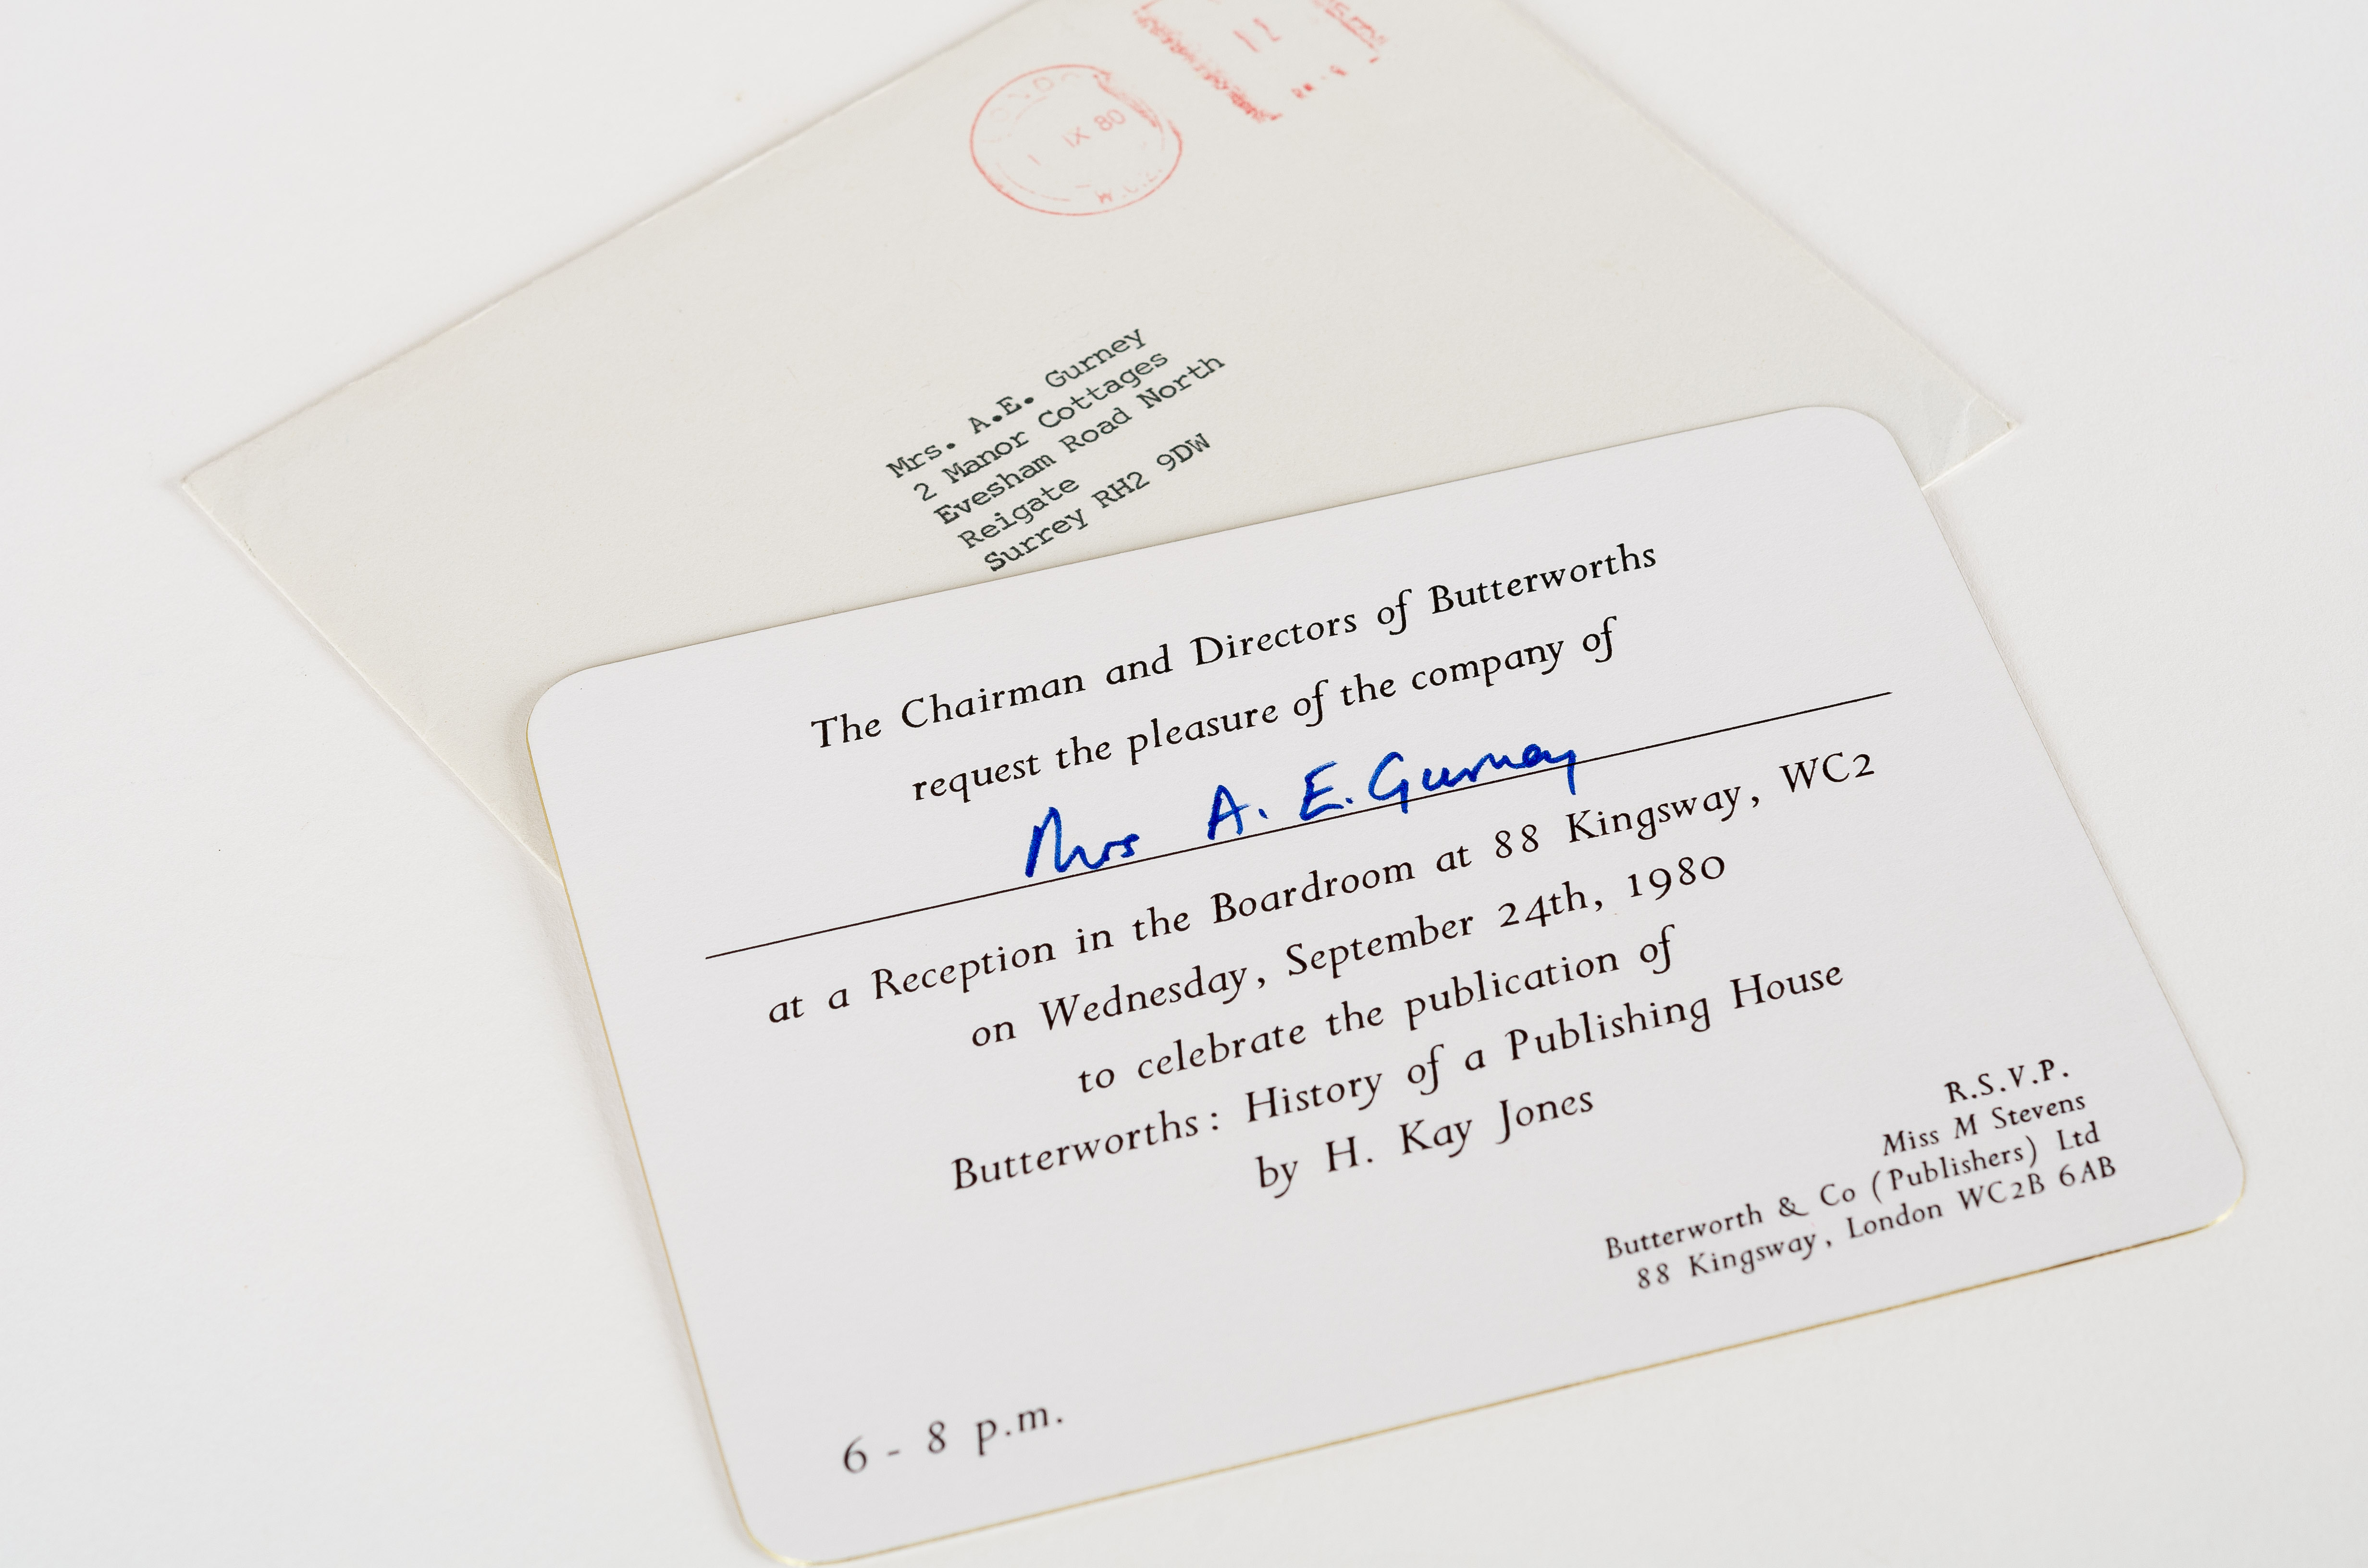 LONDON
1 IX 80
W.C.2.
Mrs. A.E. Gurney
2 Manor Cottages
Evesham Road North
Reigate
Surrey RH2 9DW
The Chairman and Directors of Butterworths
request the pleasure of the company of
Mrs A. E. Gurney
at a Reception in the Boardroom at 88 Kingsway, WC2
on Wednesday, September 24th, 1980
to celebrate the publication of
Butterworths: History of a Publishing House
by H. Kay Jones
R.S.V.P.
Miss M Stevens
Butterworth & Co (Publishers) Ltd
88 Kingsway, London WC2B 6AB
6 - 8 p.m.